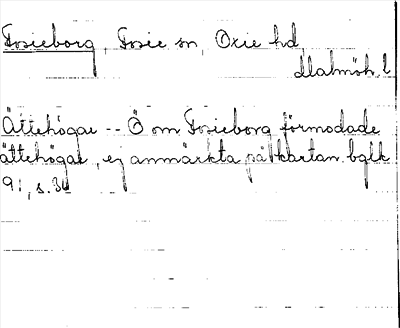 Fosieborg, Fosie sn, Oxie hd,
Malmöh. l
Ättehögar -- Ö om Fosieborg förmodade
ättehögar, ej anmärkta på kartan. bglk
91, s. 34